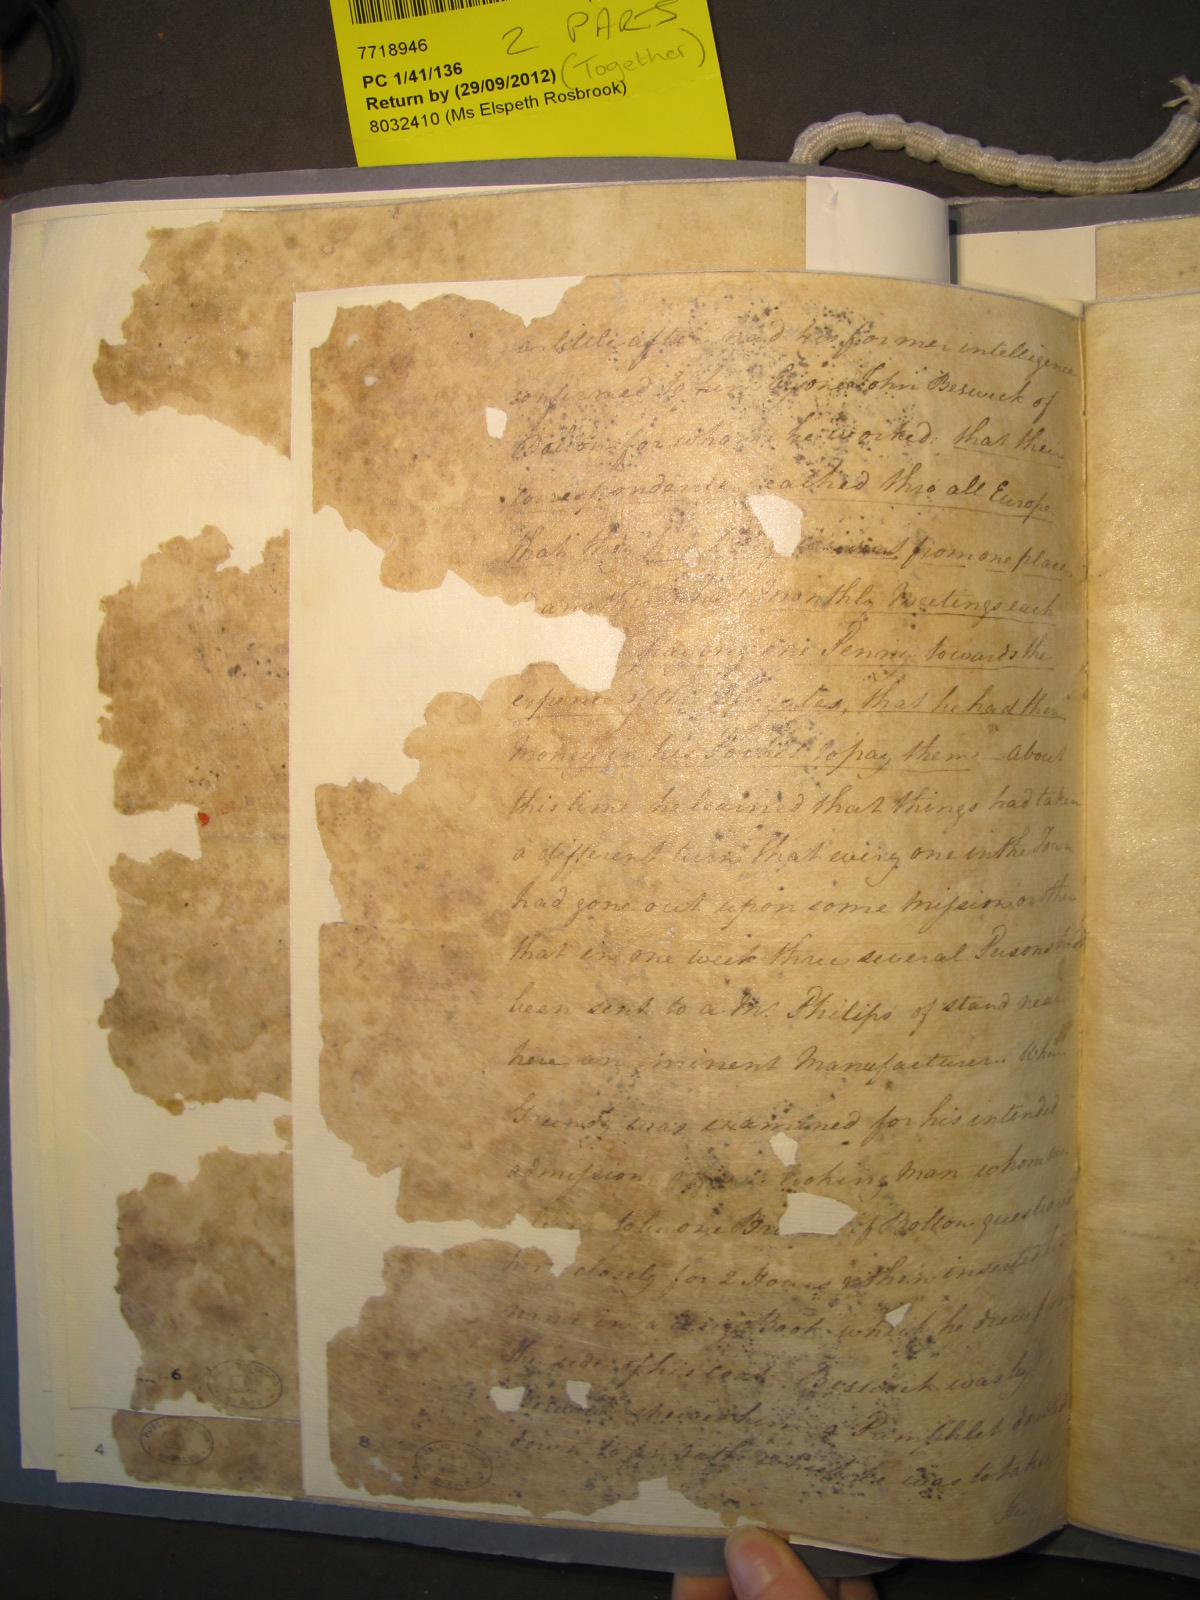 7718946
2 PARTS
PC 1/41/136
(Together)
Return by (29/09/2012)
8032410 (Ms Elspeth Rosbrook)
a little after had his former intelligence
confirmed to him by one John Beswick of
Bolton for whom he worked. that their
correspondence reached thro all Europe
that they from one place
another monthly Meetings each
paying one Penny towards the
expence of the Delegates, that he had their
money in his Pocket to pay them - About
this time he learned that things had taken
a different turn, that every one in the Town
had gone out upon some Mission or other
that in one week three several Persons had
been sent to a Mr. Philips of Stand near
here an eminent Manufacturer. When
Grundy was examined for his intended
admission looking Man whom
to be one of Bolton questioned
him closely for 2 Hours & then inserted his
name in a Book which he drew from
the side of his coat. Beswick
shewed him a Pamphlet
down to an oath which he was to take
6
4
8